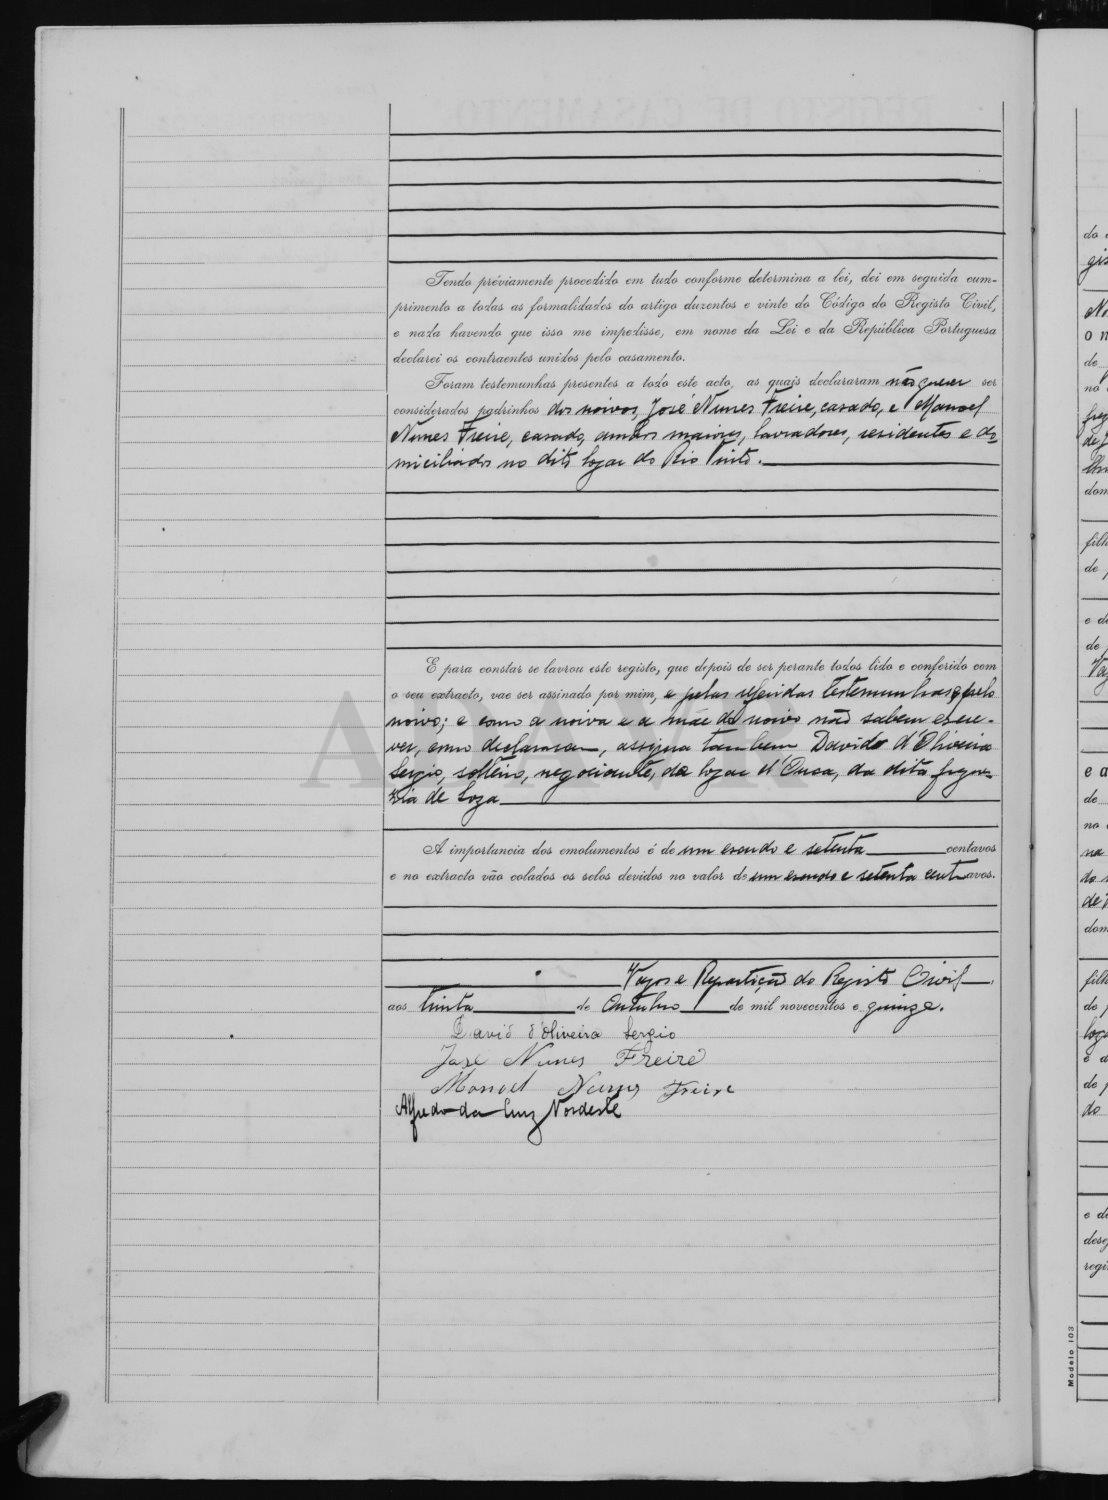 Tendo préviamente procedido em tudo conforme determina a lei, dei em seguida cum-
primento a todas as formalidades do artigo duzentos e vinte do Código do Registo Civil,
e nada havendo que isso me impedisse, em nome da Lei e da República Portuguesa
declarei os contraentes unidos pelo casamento.
Foram testemunhas presentes a todo este acto, as quais declararam não querer ser
considerados padrinhos dos noivos, José Nunes Freire, casado, e Manoel
Nunes Freire, casado, ambos maiores, lavradores, residentes e do
miciliados no dito logar do Rio Tinto.
E para constar se lavrou este registo, que depois de ser perante todos lido e conferido com
o seu extracto, vae ser assinado por mim, e pelas referidas testemunhas e pelo
noivo; e como a noiva e a mãe do noivo não sabem escre-
ver, como declararam, assigna tambem David d'Oliveira
Sergio, solteiro, negociante, do logar d', da dita fregue-
zia de Soza
A importancia dos emolumentos é de um escudo e setenta centavos
e no extracto vão colados os selos devidos no valor de um escudo e setenta centavos.
Vagos e Repartição do Registo Civil,
aos trinta de Outubro de mil novecentos e quinze.
David d'Oliveira Sergio
José Nunes Freire
Manoel Nunes Freire
Alfredo da Cruz Nordeste
ADAVR
Modelo 103